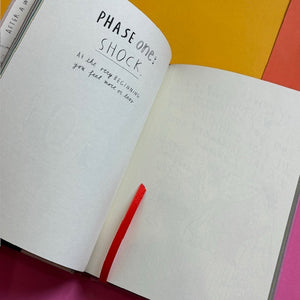 PHASE one:
SHOCK.
At the very BEGINNING
you feel more or less
AFTER A